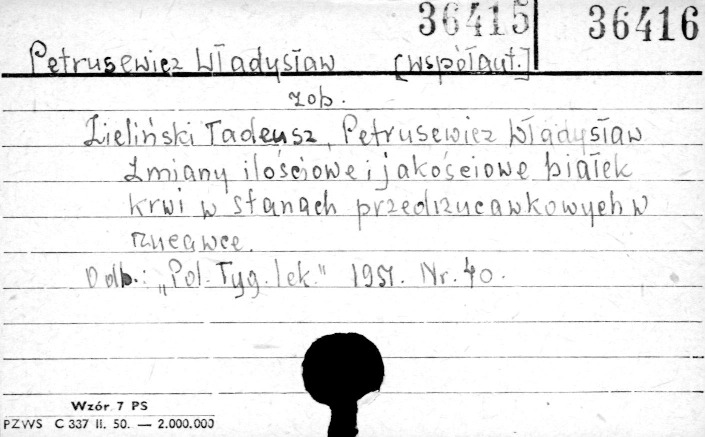 36415 36416
Petrusewicz Władysław [współaut.]
zob.
Zieliński Tadeusz, Petrusewicz Władysław
Zmiany ilościowe i jakościowe białek
krwi w stanach przedrzucawkowych w
rzucawce.
Odb.: „Pol. Tyg. lek." 1951. Nr. 40.
Wzór 7 PS
PZWS C 337 II. 50. — 2.000.000